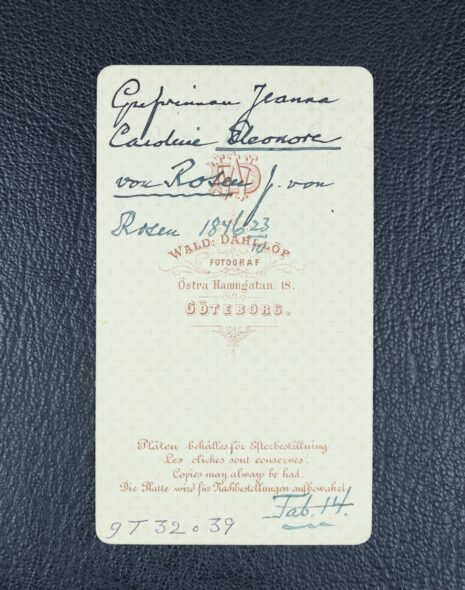 Grefvinnan Jeanna
Caroline Eleonore
von Rosen f. von
Rosen 1846 23/10
WD
WALD: DAHLLÖF
FOTOGRAF
Östra Hamngatan. 18.
GÖTEBORG.
Plåten behålles för Efterbeställning
Les cliches sont conserves.
Copies may always be had.
Die Platte wird für Nachbestellungen aufbewahrt
Tab. 14.
9T32039